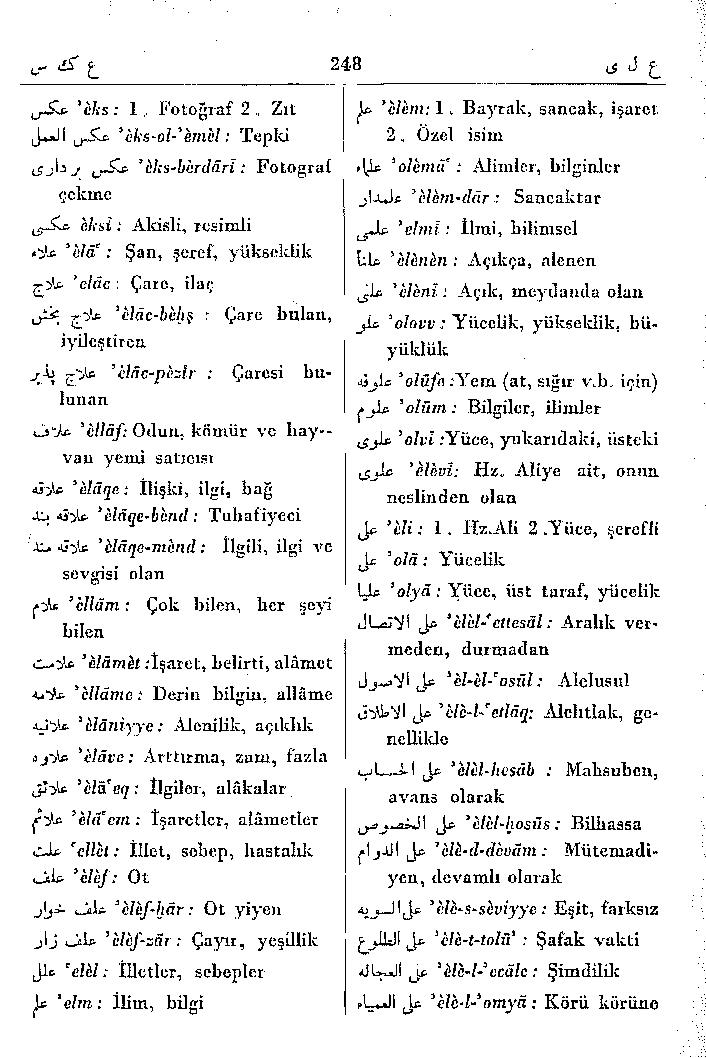 ع ك س 248 ع ل ى
عكس ’èks : 1 . Fotoğraf 2 . Zıt
عكس العمل ’èks-ol-’èmèl : Tepki
عكس بردارى ’èks-bèrdārī : Fotograf
çekme
عكسى èksī : Akisli, resimli
علاء ’èlāʿ : Şan, şeref, yükseklik
علاج ’elāc : Çare, ilaç
علاج بخش ’èlāc-bèḫş : Çare bulan,
iyileştiren
علاج پذير ’èlāc-pèzīr : Çaresi bu-
lunan
علاف ’èllāf: Odun, kömür ve hay--
van yemi satıcısı
علاقه ’èlāqe : İlişki, ilgi, bağ
علاقه بند ’èlāqe-bènd : Tuhafiyeci
علاقه مند ’èlāqe-mènd : İlgili, ilgi ve
sevgisi olan
علام ’èllām : Çok bilen, her şeyi
bilen
علامت ’èlāmèt :İşaret, belirti, alâmet
علامه ’èllāme : Derin bilgin, allâme
علانيه ’èlāniyye : Alenilik, açıklık
علاوه ’èlāve : Arttırma, zam, fazla
علائق ’èlāʿeq : İlgiler, alâkalar
علائم ’èlāʿem : İşaretler, alâmetler
علت ʿellèt : İllet, sebep, hastalık
علف ’èlèf : Ot
علف خوار ’èlèf-ḫār : Ot yiyen
علف زار ’èlèf-zār : Çayır, yeşillik
علل ʿelèl : İlletler, sebepler
علم ’elm : İlim, bilgi
علم ’èlèm: 1 . Bayrak, sancak, işaret
2 . Özel isim
علماء ’olèmāʿ : Alimler, bilginler
علمدار ’èlèm-dār : Sancaktar
علمى ’elmī : İlmi, bilimsel
علنا ’èlènèn : Açıkça, alenen
علنى ’èlènī : Açık, meydanda olan
علو ’olovv : Yücelik, yükseklik, bü-
yüklük
علوفه ’olūfe :Yem (at, sığır v.b. için)
علوم ’olūm : Bilgiler, ilimler
علوى ’olvī :Yüce, yukarıdaki, üsteki
علوى ’èlèvī: Hz. Aliye ait, onun
neslinden olan
على ’èli : 1 . Hz.Ali 2 .Yüce, şerefli
على ’olā : Yücelik
عليا ’olyā : Yüce, üst taraf, yücelik
على الاتصال ’èlèl-ʿettesāl : Aralık ver-
meden, durmadan
على الاصول ’èl-èl-ʿosūl : Alelusul
على الاطلاق ’èlè-l-ʿetlāq: Alelıtlak, ge-
nellikle
على الحساب ’èlèl-hesāb : Mahsuben,
avans olarak
على الخصوص ’èlèl-ḫosūs : Bilhassa
على الدوام ’èlè-d-dèvām : Mütemadi-
yen, devamlı olarak
على السويه ’èlè-s-sèviyye : Eşit, farksız
على الطلوع ’èlè-t-tolū’ : Şafak vakti
على العجاله ’èlè-l-’ecāle : Şimdilik
على العمياء ’èlè-l-’omyā : Körü körüne